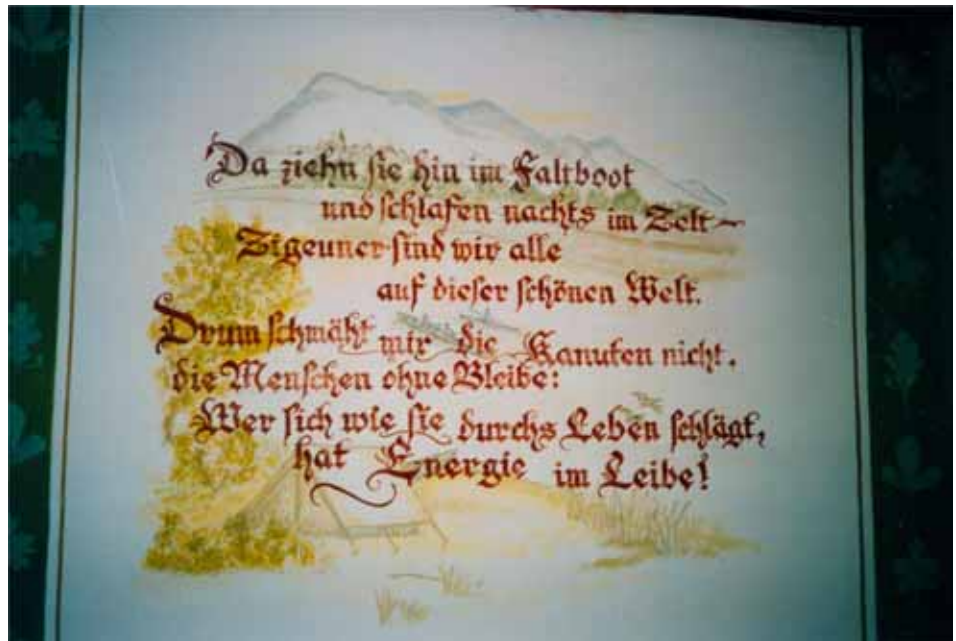 Da ziehn sie hin im Faltboot
und schlafen nachts im Zelt –
Zigeuner sind wir alle
auf dieser schönen Welt.
Drum schmäht mir die Kanuten nicht,
die Menschen ohne Bleibe:
Wer sich wie sie durchs Leben schlägt,
hat Energie im Leibe!